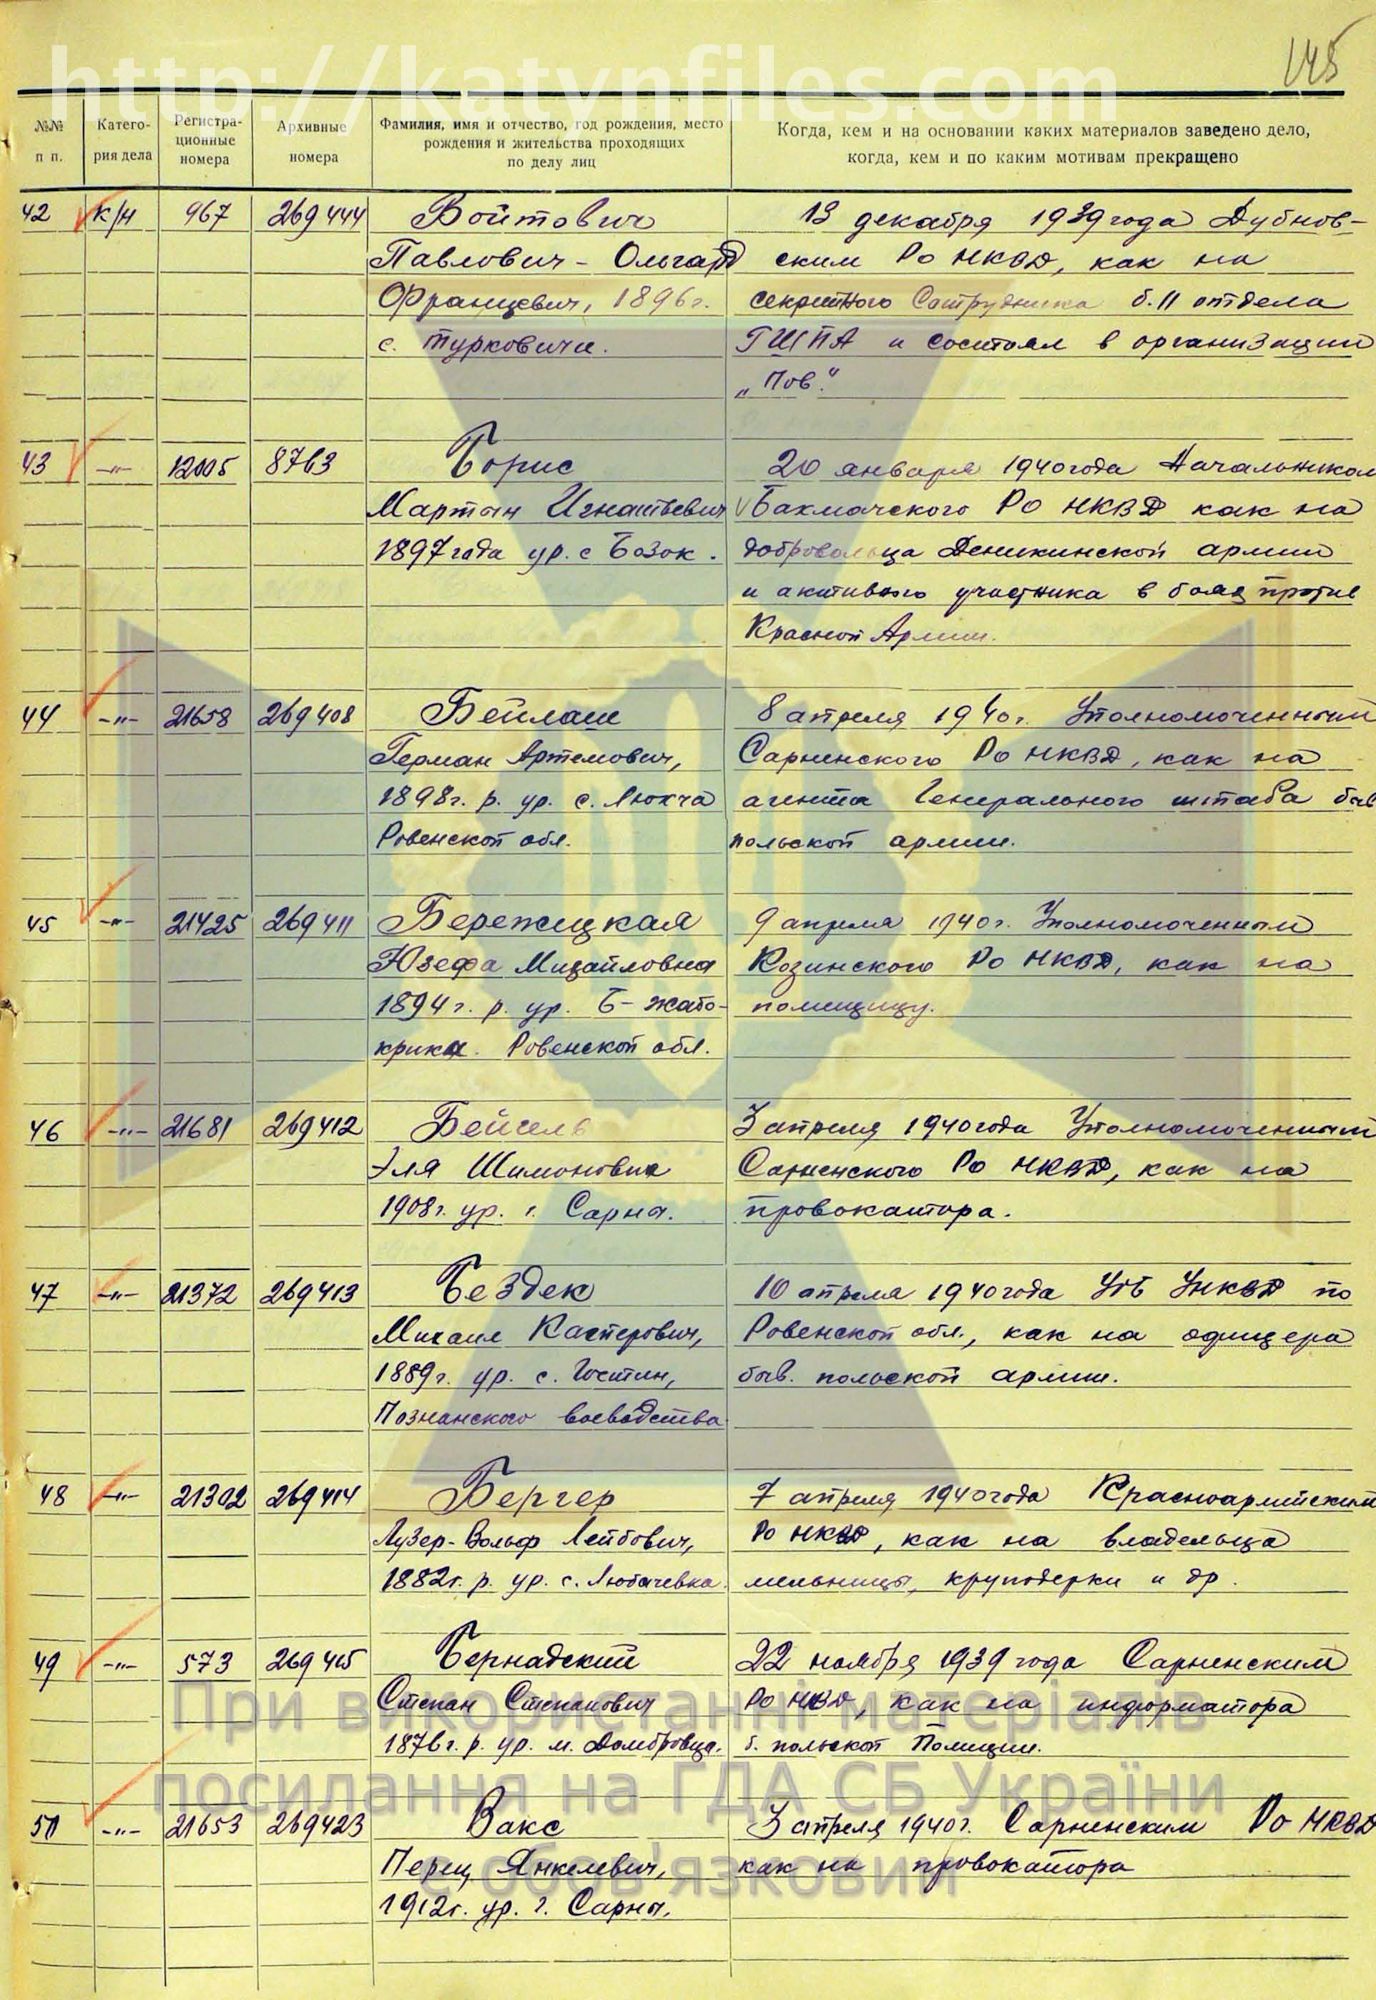 http://katynfiles.com
145
№№ п п.
Катего-
рия дела
Регистра-
ционные
номера
Архивные
номера
Фамилия, имя и отчество, год рождения, место
рождения и жительства проходящих
по делу лиц
Когда, кем и на основании каких материалов заведено дело,
когда, кем и по каким мотивам прекращено
42 к/н 967 269444 Войтович 13 декабря 1939 года Дубнов-
Павлович - Ольгард ским Ро НКВД, как на
Францевич, 1896 г. секретного Сотрудника б. II отдела
с. Турковичи. ГШПА и состоял в организации
„Пов“.
43 -"- 12005 8763 Борис 20 января 1940 года Начальником
Мартын Игнатьевич Бахмачского РО НКВД как на
1897 года ур. с Бозок. добровольца Деникинской армии
и активного участника в боях против
Красной Армии.
44 -"- 21658 269408 Бейлаш 8 апреля 1940 г. Уполномоченным
Герман Артемович, Сарненского Ро НКВД, как на
1898 г. р. ур. с. Люхча агента Генерального штаба быв
Ровенской обл. польской армии.
45 -"- 21425 269411 Бережицкая 9 апреля 1940 г. Уполномоченным
Юзефа Михайловна Козинского Ро НКВД, как на
1894 г. р. ур. Б-жабо- помещицу.
крики. Ровенской обл.
46 -"- 21681 269412 Бейгель 3 апреля 1940 года Уполномоченным
Эля Шимонович Сарненского Ро НКВД, как на
1908 г. ур. г. Сарны. провокатора.
47 -"- 21372 269413 Бездек 10 апреля 1940 года УГБ УНКВД по
Михаил Касперович, Ровенской обл., как на офицера
1889 г. ур. с. Гостин, быв. польской армии.
Познанского воеводства
48 -"- 21302 269414 Бергер 7 апреля 1940 года Красноармейский
Лузер-Вольф Лейбович, Ро НКВД, как на владельца
1882 г. р. ур. с. Любачевка. мельницы, круподерки и др.
49 -"- 573 269415 Бернадский 22 ноября 1939 года Сарненским
Степан Степанович Ро НКВД, как на информатора
1876 г. р. ур. м. Домбровца. б. польской Полиции.
50 -"- 21653 269423 Вакс 3 апреля 1940 г. Сарненским Ро НКВД
Перец Янкелевич, как на провокатора
1912 г. ур. г. Сарны.
При використанні матеріалів
посилання на ГДА СБ України
є обов'язковим